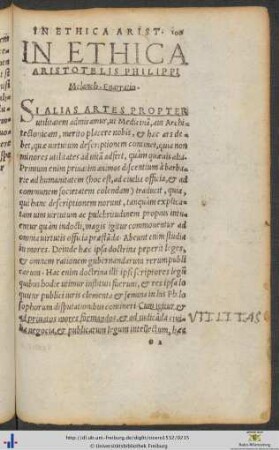 IN ETHICA ARIST.
IN ETHICA
ARISTOTELIS PHILIPPI
Melanch. Enarratio.
SI ALIAS ARTES PROPTER
utilitatem admiramur, ut Medicinã, aut Archi
tectonicam, merito placere nobis, & hæc ars de
bet, quæ virtutum descriptionem continet, quia non
minores utilitates ad uitã adfert, quàm quævis alia.
Primum enim privatim animos discentium à barba
rie ad humanitatem (hoc est, ad civilia officia, & ad
communem societatem colendam) traducit, quia,
qui hanc descriptionem norunt, tanquàm explica
tam vim virtutum ac pulchritudinem propius intu
entur quàm indocti, magis igitur commouentur ad
omnia virtutis officia præstãda. Abeunt enim studia
in mores. Deinde hæc ipsa doctrina peperit leges,
& omnem rationem gubernandarum rerum publi
carum. Hac enim doctrina illi ipsi scriptores legũ
quibus hodie utimur instituti fuerunt, & res ipsa lo
quitur publici iuris elementa & semina in his Phi lo
sophorum disputationibus contineri. Cum igitur &
ad privatos mores formandos, & ad iudicãda civi
lia negocia, & publicarum legum intellectum, hæc
o 2
VTILITAS
http://dl.ub.uni-freiburg.de/diglit/
© Universitätsbibliothek Freiburg